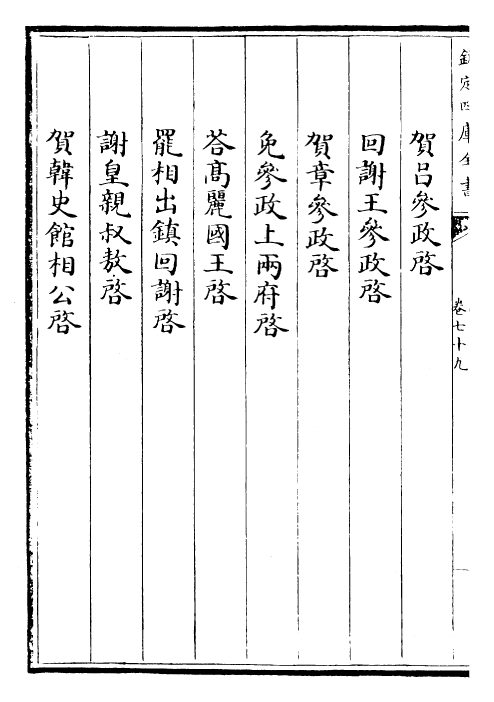 欽定四庫全書
卷七十九
賀呂參政啓
回謝王參政啓
賀章參政啓
免參政上兩府啓
荅髙麗國王啓
罷相出鎮回謝啓
謝皇親叔敖啓
賀韓史館相公啓